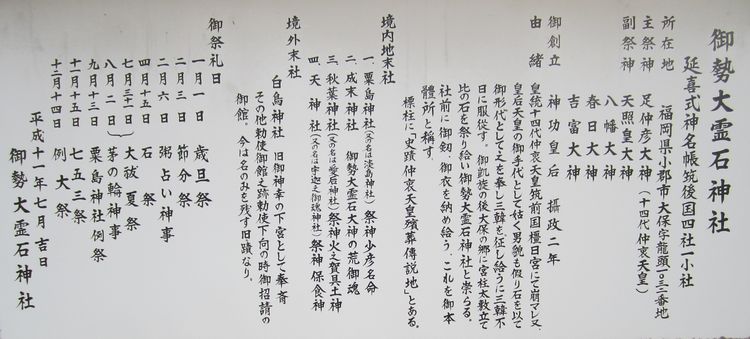 御勢大霊石神社
延喜式神名帳筑後国四社一小社
所在地　福岡県小郡市大保字龍頭一〇三二番地
主祭神　足仲彦大神（十四代仲哀天皇）
副祭神　天照皇大神
八幡大神
春日大神
吉富大神
御創立　神功皇后　摂政二年
由緒　皇統十四代仲哀天皇筑前国橿日宮にて崩マレ又、
皇后天皇の御手代として姑く男貌も假り石を以て
御形代として之を奉し三韓を征し給うに三韓不
日に服従す。御凱旋の後大保の郷に宮柱太敷立て
此の石を祭り給い御勢大霊石神社と崇らる。
社前に御剱、御衣を納め給う、これを御本
體所と称す。
標柱に「史蹟仲哀天皇殯葬傳説地」とある。
境内地末社
一、粟島神社（又の名は淡島神社）祭神少彦名命
二、成末神社　御勢大霊石大神の荒御魂
三、秋葉神社（又の名は愛后神社）祭神火之賀具土神
四、天神社（又の名は宇迦之御魂神社）祭神保食神
境外末社
白鳥神社　旧御神幸の下宮として奉斎
その他勅使御館之跡勅使下向の時御招請の
御館。今は名のみを残す旧蹟なり。
御祭礼日
一月一日　歳旦祭
二月三日　節分祭
二月六日　粥占い神事
四月十五日　石祭
七月三十一日　大祓夏祭
八月二日　茅の輪神事
九月十三日　粟島神社例祭
十一月十五日　七五三祭
十二月十四日　例大祭
平成十一年七月吉日
御勢大霊石神社